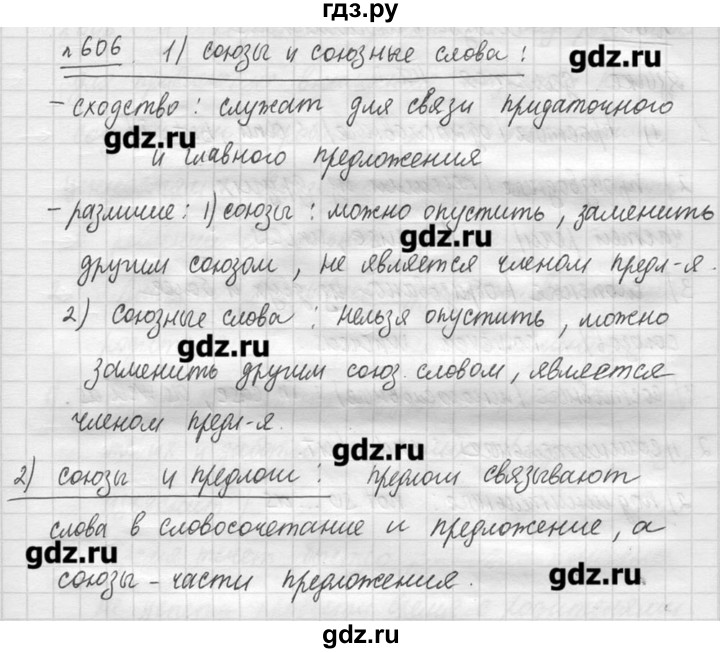 гдз.ру
№606 1) союзы и союзные слова:
gdz.ru
- сходство: служат для связи придаточного
gdz.ru
и главного предложения
- различие: 1) союзы: можно опустить, заменить
gdz.ru
другим союзом, не является членом предл-я.
2) союзные слова: нельзя опустить, можно
gdz.ru
заменить другим союз. словом, является
членом предл-я.
gdz.ru
2) союзы и предлоги: предлоги связывают
слова в словосочетание и предложение, а
gdz.ru
союзы - части предложения.
gdz.ru
gdz.ru